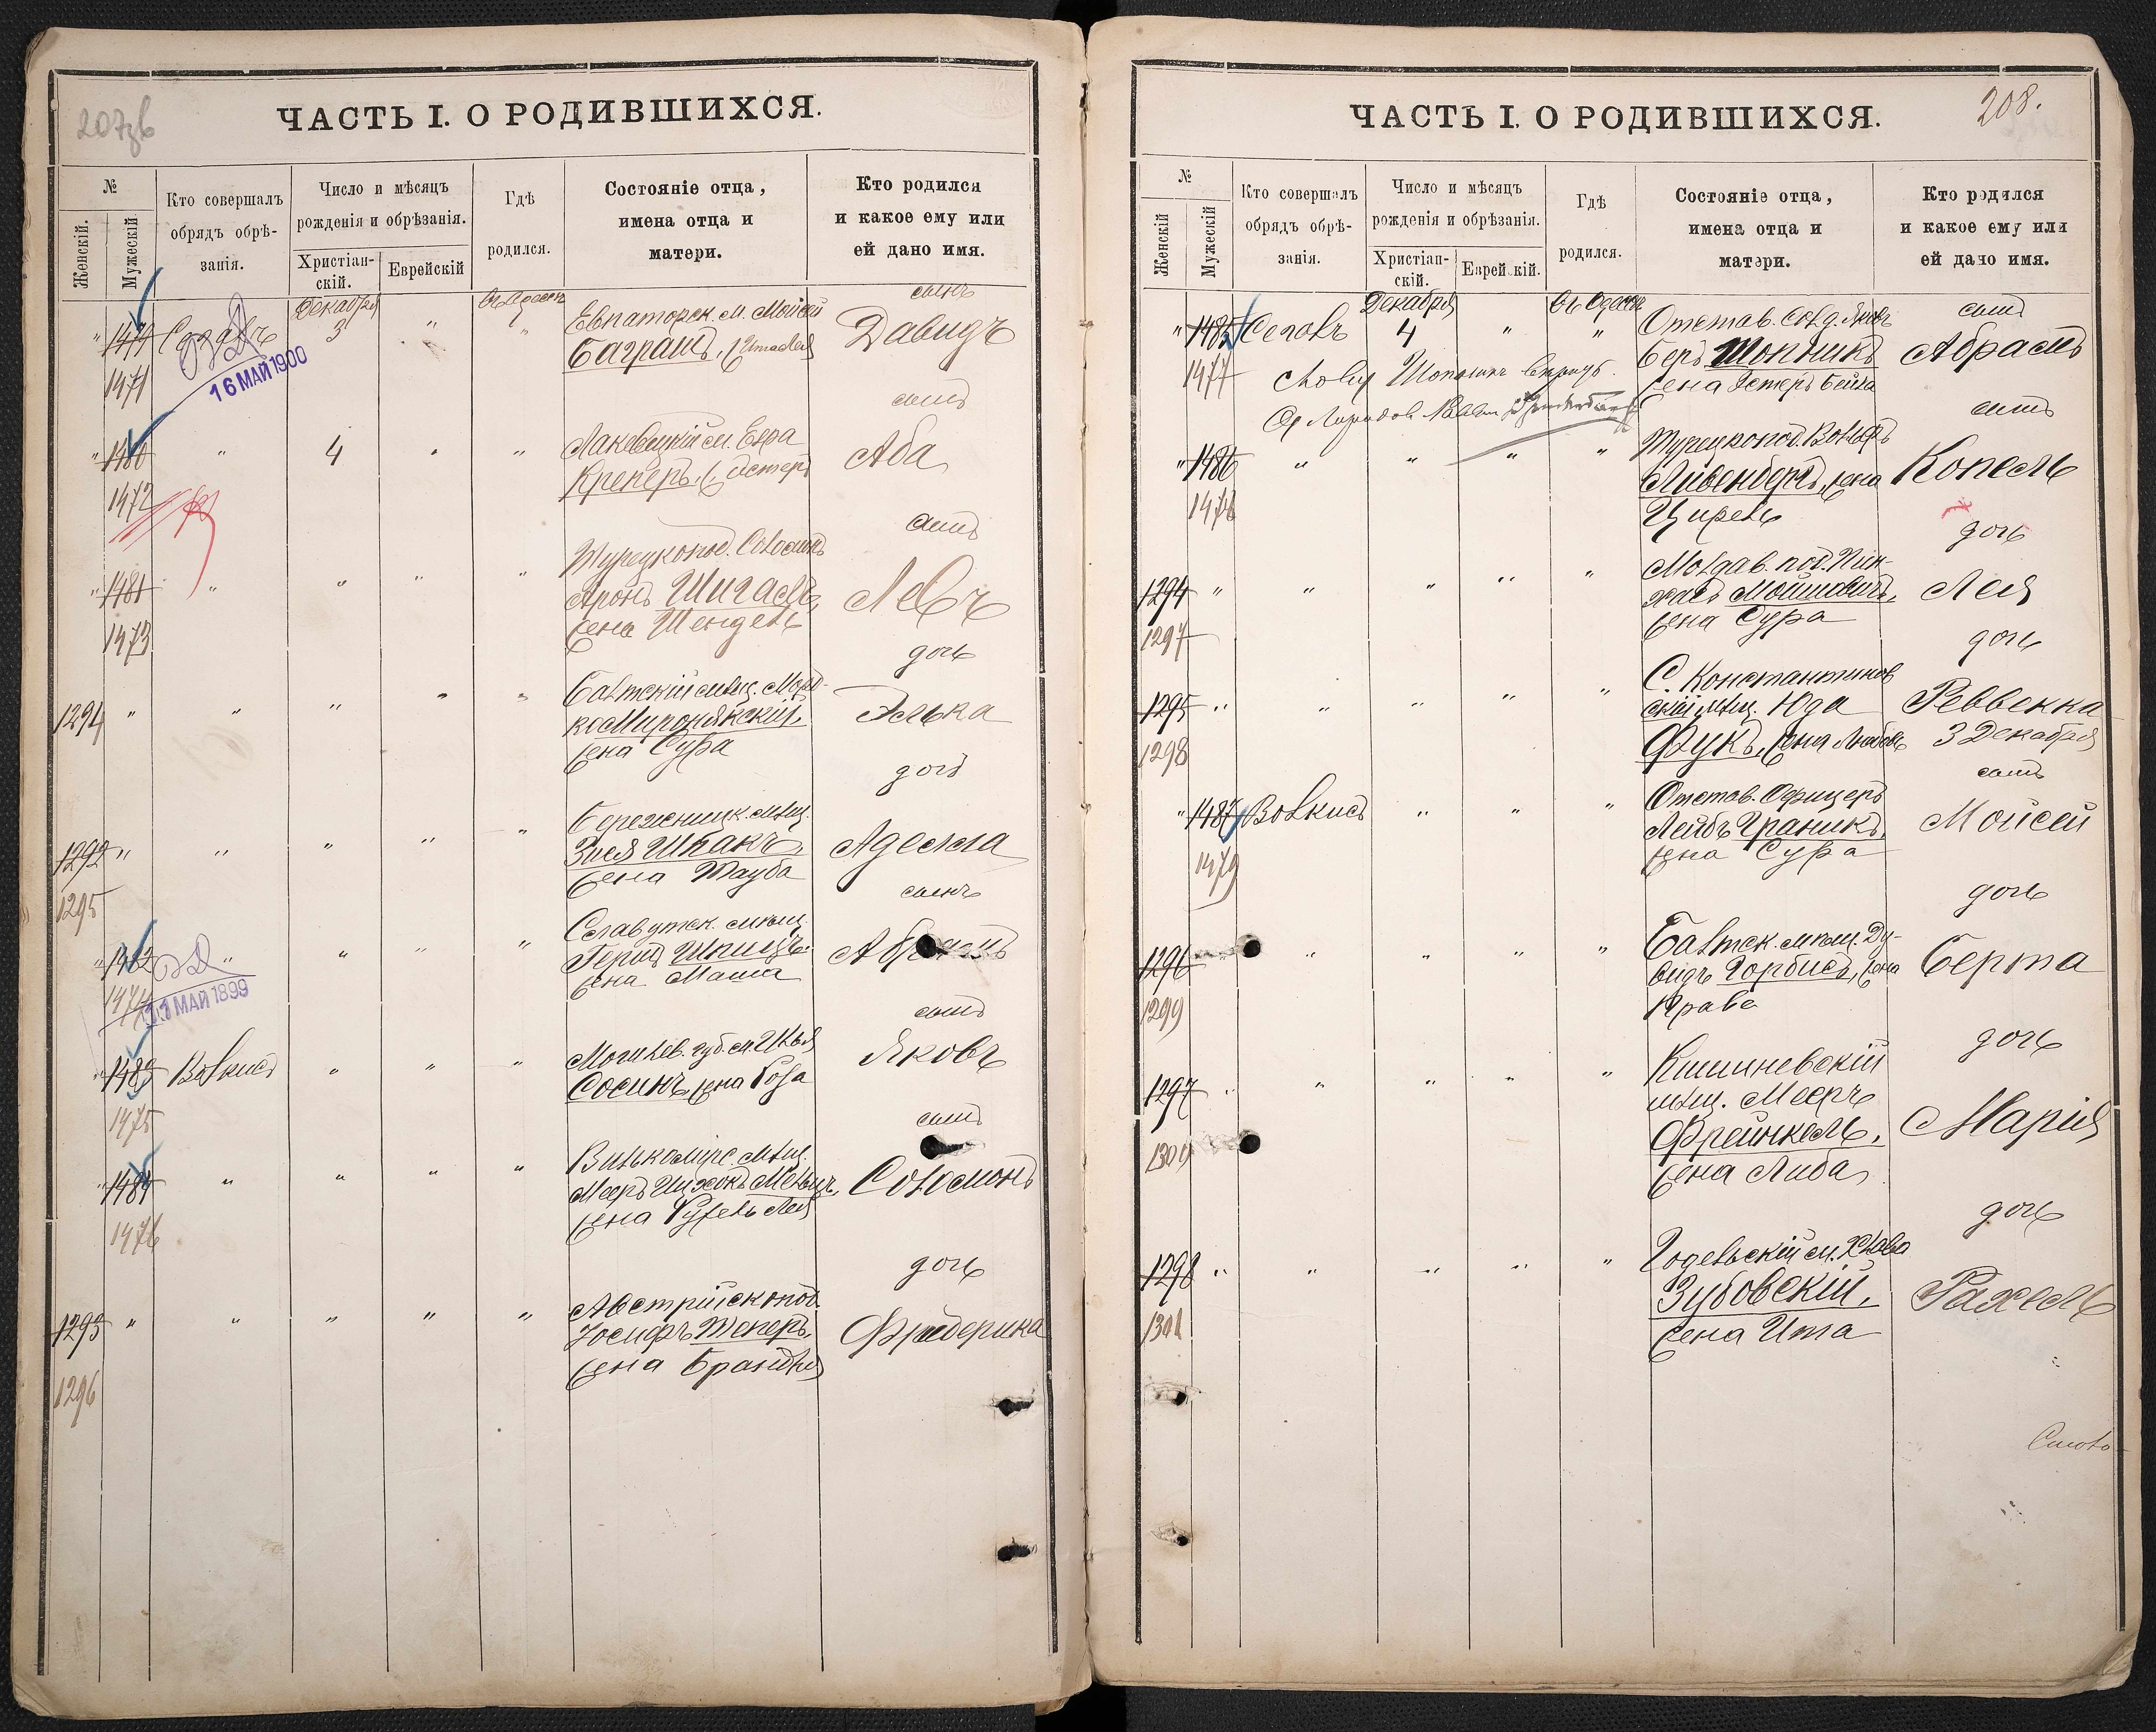 ЧАСТЬ I. О РОДИВШИХСЯ.
№
Женскій.
Мужескій
Кто совершалъ
обрядъ обрѣ-
занія.
Число и мѣсяцъ
рожденія и обрѣзанія.
Христіан-
скій.
Еврейскій
Гдѣ
родился.
Состояніе отца,
имена отца и
матери.
Кто родился
и какое ему или
ей дано имя.
1479
1471
Декабря
3
16 МАЙ 1900
Евпаторск. м. Мойсей
Багранъ,
сынъ
Давидъ
1480
1472
4
Крекеръ,
сынъ
Аба
1481
1473
Турецкопод. Соломонъ
Аронъ Шигаль,
жена Шендель
сынъ
Левъ
1294
Балтскій мѣщ. Морд-
ко Миронянскій,
жена Сура
дочь
Элька
1292
1295
Зися Шпакъ,
жена Тауба
дочь
Аделла
1482
1474
11 МАЙ 1899
Славутск. мѣщ.
Герш Шпицъ,
жена Маша
сынъ
Абрамъ
1483
1475
Волкисъ
Могилев. губ. м. Илья
Сосинъ, жена Роза
сынъ
Яковъ
1484
1476
Вилькомирс. мѣщ.
жена Рухель Лея
сынъ
Соломонъ
1293
1296
Австрійскопод.
Іосифъ Текеръ,
жена Брандля
дочь
Фридерика
208.
ЧАСТЬ I. О РОДИВШИХСЯ.
№
Женскій
Мужескій
Кто совершалъ
обрядъ обрѣ-
занія.
Число и мѣсяцъ
рожденія и обрѣзанія.
Христіан-
скій.
Еврейскій.
Гдѣ
родился.
Состояніе отца,
имена отца и
матери.
Кто родился
и какое ему или
ей дано имя.
1485
1477
Сегалъ
Декабря
4
въ Одессѣ
Отстав. солд. Яковъ
Беръ Шопникъ
жена Эстеръ Бейла
сынъ
Абрамъ
1486
1478
Турецкопод. Вольфъ
Ливенбергъ, жена
Цирель
сынъ
Копель
1294
1297
Молдав. под. Пин-
хасъ Мошковичъ,
жена Сура
дочь
Лея
1295
1298
С. Константинов
скій мѣщ. Юда
Фукъ, жена Любовь
дочь
Реввекка
3 Декабря
1487
1479
Волкисъ
Отстав. Офицеръ
Лейбъ Граникъ,
жена Сура
сынъ
Мойсей
1296
1299
Балтск. мѣщ. Ду-
видъ Горбисъ, жена
дочь
Берта
1297
1300
Кишиневскій
мѣщ. Мееръ
Фрейнкель,
жена Либа
дочь
Марія
1298
1301
Зубовскій,
жена Ита
дочь
Рахель